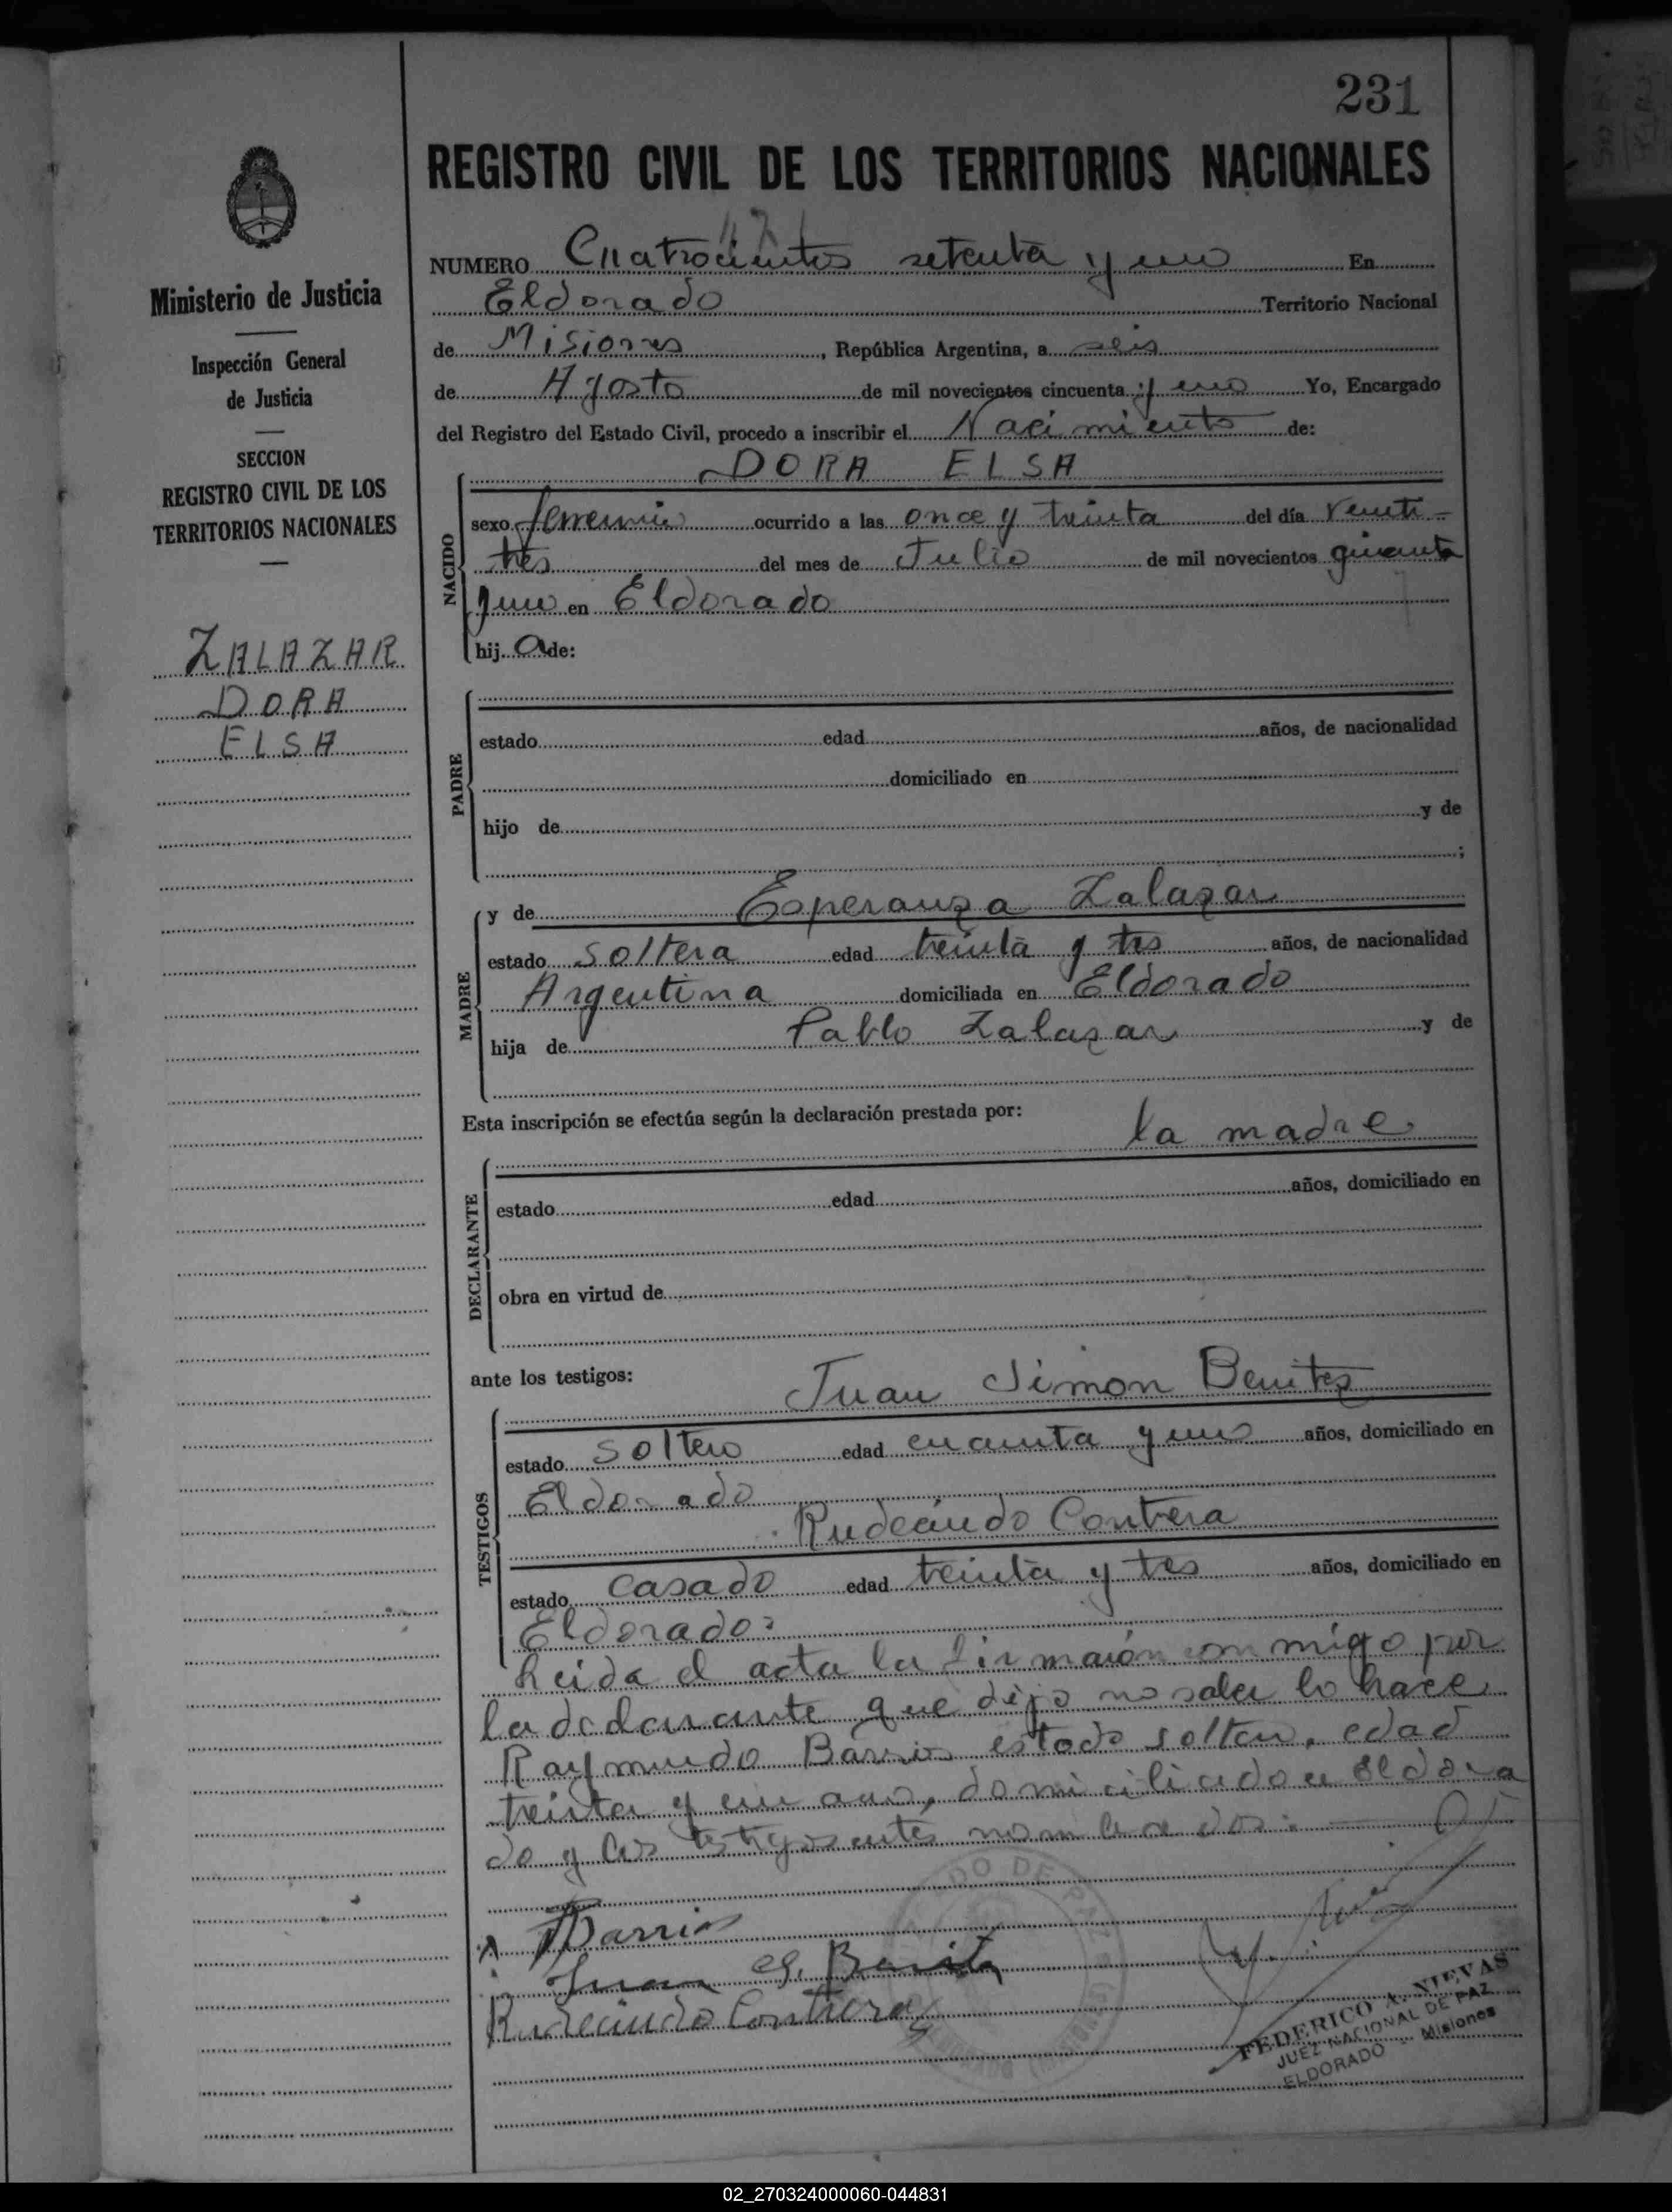 231
REGISTRO CIVIL DE LOS TERRITORIOS NACIONALES
Ministerio de Justicia
Inspección General
de Justicia
SECCION
REGISTRO CIVIL DE LOS
TERRITORIOS NACIONALES
ZALAZAR
DORA
ELSA
471
NUMERO Cuatrocientos setenta y uno En
Eldorado Territorio Nacional
de Misiones, República Argentina, a seis
de Agosto de mil novecientos cincuenta y uno Yo, Encargado
del Registro del Estado Civil, procedo a inscribir el Nacimiento de:
DORA ELSA
NACIDO
sexo femenino ocurrido a las once y treinta del día veinti-
tres del mes de Julio de mil novecientos cincuenta
y uno en Eldorado
hij a de:
PADRE
estado edad años, de nacionalidad
domiciliado en
hijo de y de
;
MADRE
y de Esperanza Zalazar
estado soltera edad treinta y tres años, de nacionalidad
Argentina domiciliada en Eldorado
hija de Pablo Zalazar y de
Esta inscripción se efectúa según la declaración prestada por:
la madre
DECLARANTE
estado edad años, domiciliado en
obra en virtud de
ante los testigos:
Juan Simon Benitez
TESTIGOS
estado soltero edad cuarenta y uno años, domiciliado en
Eldorado
Rudecindo Contrera
estado casado edad treinta y tres años, domiciliado en
Eldorado:
Leida el acta la firmaron conmigo por
la declarante que dijo no saber lo hace
Raymundo Barrios estado soltero, edad
treinta y un años, domiciliado en Eldora
do y los testigos antes nombrados.
Barrios
Juan S. Benitez
Rudecindo Contrera
FEDERICO A. NIEVAS
JUEZ NACIONAL DE PAZ
ELDORADO - Misiones
02_270324000060-044831